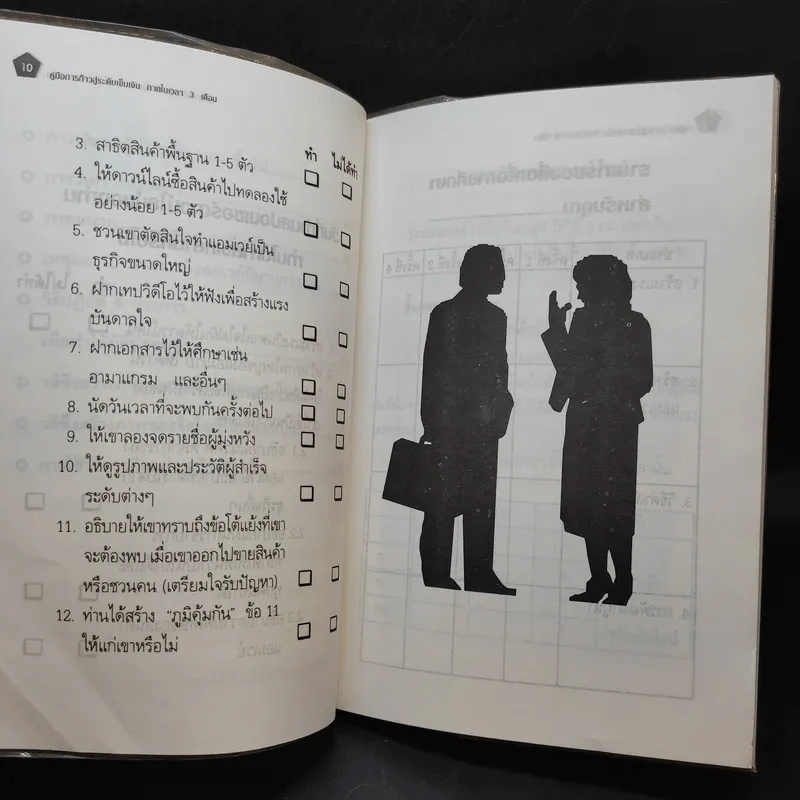 10
คู่มือการก้าวสู่ระดับเข็มเงิน ภายในเวลา 3 เดือน
ทำ ไม่ได้ทำ
3. สาธิตสินค้าพื้นฐาน 1-5 ตัว
4. ให้ดาวน์ไลน์ซื้อสินค้าไปทดลองใช้
อย่างน้อย 1-5 ตัว
5. ชวนเขาตัดสินใจทำแอมเวย์เป็น
ธุรกิจขนาดใหญ่
6. ฝากเทปวิดีโอไว้ให้ฟังเพื่อสร้างแรง
บันดาลใจ
7. ฝากเอกสารไว้ให้ศึกษาเช่น
อามาแกรม และอื่นๆ
8. นัดวันเวลาที่จะพบกันครั้งต่อไป
9. ให้เขาลองจดรายชื่อผู้มุ่งหวัง
10. ให้ดูรูปภาพและประวัติผู้สำเร็จ
ระดับต่างๆ
11. อธิบายให้เขาทราบถึงข้อโต้แย้งที่เขา
จะต้องพบ เมื่อเขาออกไปขายสินค้า
หรือชวนคน (เตรียมใจรับปัญหา)
12. ท่านได้สร้าง "ภูมิคุ้มกัน" ข้อ 11
ให้แก่เขาหรือไม่